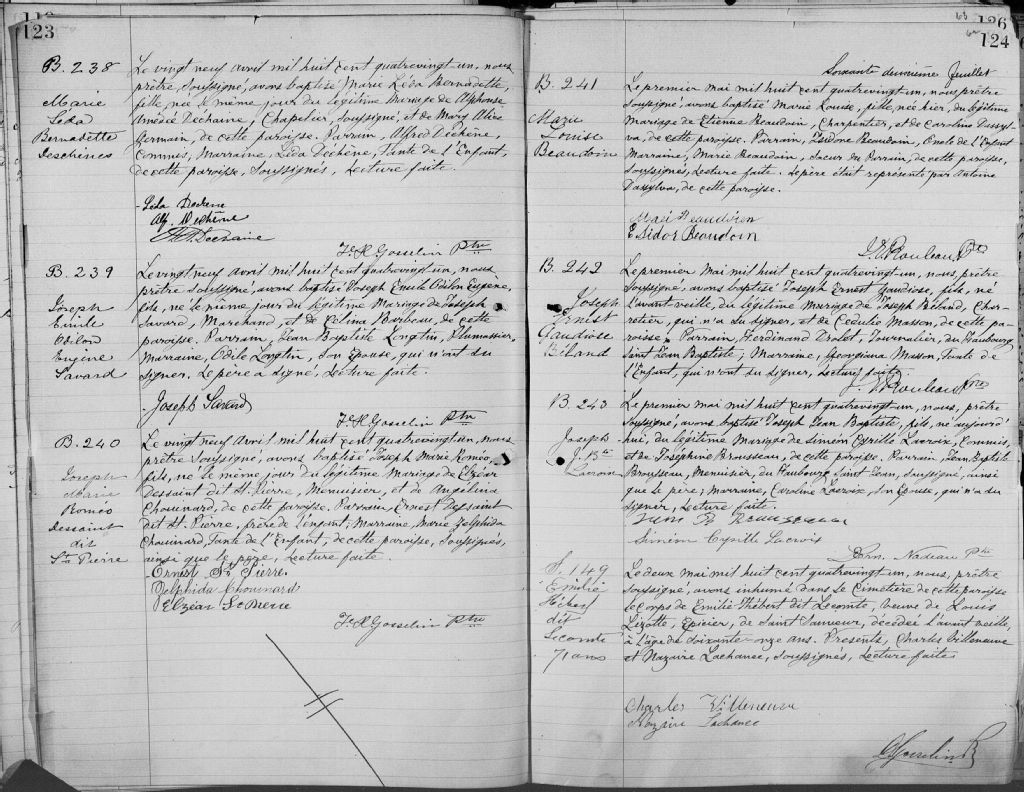 123
B. 238
Marie
Léda
Bernadette
Deschenes
Le vingt neuf avril mil huit cent quatrevingt-un, nous
prêtre soussigné, avons baptisé Marie Léda Bernadette,
fille, née le même jour du légitime Mariage de Alphonse
Amédée Dechaine, Chapelier, soussigné, et de Mary Alice
Germain, de cette paroisse. Parrain, Alfred Dechène,
Commis, Marraine, Léda Déchène, Tante de l'Enfant,
de cette paroisse, soussignés, Lecture faite.
Léda Dechene
Alf. Dechêne
Dechaine
F. X Gosselin Ptre
B. 239
Joseph
Emile
Odilon
Eugène
Savard
Le vingt neuf avril mil huit cent quatrevingt-un, nous
prêtre soussigné, avons baptisé Joseph Emile Odilon Eugène,
fils, né le même jour du légitime Mariage de Joseph
Savard, Marchand, et de Célina Barbeau, de cette
paroisse. Parrain, Jean Baptiste Longtin, Plumassier,
Marraine, Odile Longtin, son Epouse, qui n'ont su
signer. Le père a signé, Lecture faite.
Joseph Savard
F. X Gosselin Ptre
B. 240
Joseph
Marie
Roméo
Dessaint
dit
St. Pierre
Le vingt neuf avril mil huit cent quatrevingt-un, nous
prêtre soussigné, avons baptisé Joseph Marie Roméo,
fils, né le même jour du légitime Mariage de Elzéar
Dessaint dit St. Pierre, Menuisier, et de Angélina
Chouinard, de cette paroisse. Parrain Ernest Dessaint
dit St. Pierre, frère de l'enfant; Marraine, Marie Zelphida
Chouinard, Tante de l'Enfant, de cette paroisse, soussignés,
ainsi que le père, Lecture faite.
Ernest St Pierre
Delphida Chouinard
Elzéar St Pierre
F. X Gosselin Ptre
126
124
Soixante deuxième feuillet
B. 241
Marie
Louise
Beaudoin
Le premier mai mil huit cent quatrevingt-un, nous prêtre
soussigné, avons baptisé Marie Louise, fille, née hier, du légitime
Mariage de Etienne Beaudoin, Charpentier, et de Caroline Dassyl-
va, de cette paroisse. Parrain, Isidore Beaudoin, Oncle de l'Enfant
Marraine, Marie Beaudoin, Soeur du Parrain, de cette paroisse,
soussignés, Lecture faite. Le père était représenté par Antoine
Dassylva, de cette paroisse.
Marie Beaudoien
E Sidor Beaudoin
Rouleau Ptre
B. 242
Joseph
Ernest
Gaudiose
Béland
Le premier mai mil huit cent quatrevingt-un, nous, prêtre
soussigné, avons baptisé Joseph Ernest Gaudiose, fils, né
l'avant-veille, du légitime mariage de Joseph Béland, Char-
retier, qui n'a su signer, et de Cédulie Masson, de cette pa-
roisse. Parrain, Ferdinand Drolet, Journalier, du Faubourg
Saint Jean Baptiste; Marraine, Georgiana Masson, Tante de
l'Enfant, qui n'ont su signer, Lecture faite.
Rouleau Ptre
B. 243
Joseph
J. Bte
Lacroix
Le premier mai mil huit cent quatrevingt-un, nous, prêtre
soussigné, avons baptisé Joseph Jean Baptiste, fils, né aujourd'
hui, du légitime Mariage de Siméon Cyrille Lacroix, Commis,
et de Joséphine Brousseau, de cette paroisse. Parrain, Jean Baptiste
Brousseau, Menuisier, du Faubourg Saint Jean, soussigné, ainsi
que le père; Marraine, Caroline Lacroix, son Epouse, qui n'a su
signer, Lecture faite.
Siméon Cyrille Lacroix
Nadeau Ptre
S. 149
Emilie
Hébert
dit
Lecomte
71 ans
Le deux mai mil huit cent quatrevingt-un, nous, prêtre
soussigné, avons inhumé dans le Cimetière de cette paroisse
le Corps de Emilie Hébert dit Lecomte, veuve de Louis
Lizotte, Epicier, de Saint Sauveur, décédée l'avant veille,
à l'âge de soixante-onze ans. Présents, Charles Villeneuve
et Nazaire Lachance, soussignés, Lecture faite.
Charles Villeneuve
Nazaire Lachance
Gosselin